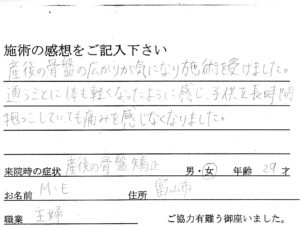 施術の感想をご記入下さい
産後の骨盤の広がりが気になり施術を受けました。
通うごとに体も軽くなったように感じ、子供を長時間
抱っこしていても痛みを感じなくなりました。
来院時の症状 産後の骨盤矯正 男・女 年齢 29才
お名前 M・E 住所 富山市
職業 主婦 ご協力有難う御座いました。